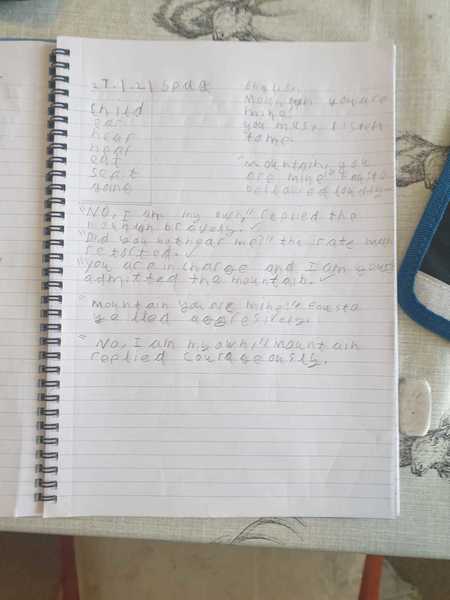 27.1.21 SPaG
child
ear
hear
near
eat
seat
gone
English
Mountain you are
mine.
you must listen
to me.
"mountain, you
are mine" Fausto
bellowed loudly.
"No, I am my own" replied the
mountain bravely.
"Did you not hear me" the irate man
retorted.
"you are in charge and I am yours"
admitted the mountain.
"Mountain you are mine" Fausto
yelled aggresively.
"No, I am my own" mountain
replied courageously.